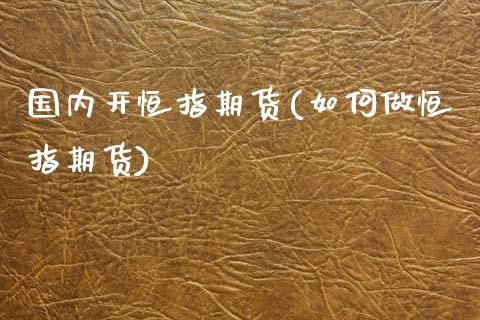 国内开恒指期货(如何做恒
指期货)